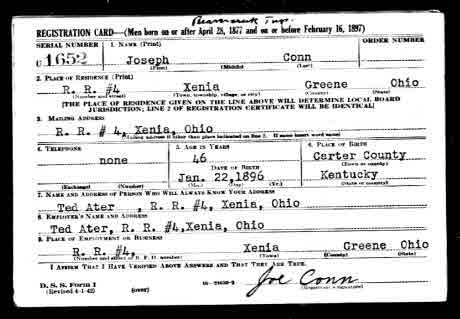 Beavercreek Twp.
REGISTRATION CARD—(Men born on or after April 28, 1877 and on or before February 16, 1897)
SERIAL NUMBER 1. NAME (Print) ORDER NUMBER
U1652 Joseph Conn
(First) (Middle) (Last)
2. PLACE OF RESIDENCE (Print)
R. R. #4 Xenia Greene Ohio
(Number and street) (Town, township, village, or city) (County) (State)
[THE PLACE OF RESIDENCE GIVEN ON THE LINE ABOVE WILL DETERMINE LOCAL BOARD
JURISDICTION; LINE 2 OF REGISTRATION CERTIFICATE WILL BE IDENTICAL]
3. MAILING ADDRESS
R. R. # 4, Xenia, Ohio
[Mailing address if other than place indicated on line 2. If same insert word same]
4. TELEPHONE 5. AGE IN YEARS 6. PLACE OF BIRTH
none 46 Carter County
DATE OF BIRTH (Town or county)
Jan. 22, 1896 Kentucky
(Exchange) (Number) (Mo.) (Day) (Yr.) (State or country)
7. NAME AND ADDRESS OF PERSON WHO WILL ALWAYS KNOW YOUR ADDRESS
Ted Ater , R. R. #4, Xenia, Ohio
8. EMPLOYER'S NAME AND ADDRESS
Ted Ater, R. R. #4, Xenia, Ohio
9. PLACE OF EMPLOYMENT OR BUSINESS
R. R. #4, Xenia Greene Ohio
(Number and street or R. F. D. number) (Town) (County) (State)
I AFFIRM THAT I HAVE VERIFIED ABOVE ANSWERS AND THAT THEY ARE TRUE.
D. S. S. Form 1 Joe Conn
(Revised 4-1-42) (over) 16—21630-2 (Registrant's signature)